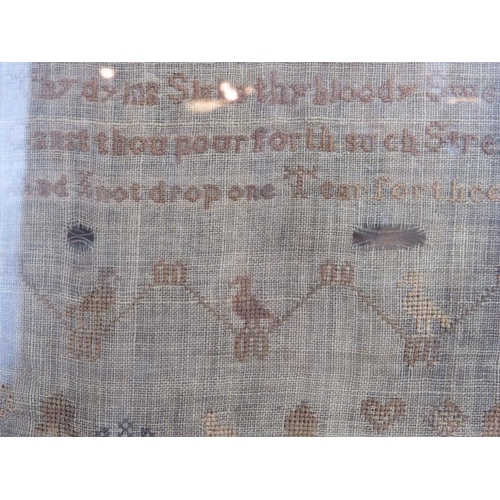 thy dying Sighs thy bloody Swe
canst thou pour forth such Stre
and I not drop one Tear for thee